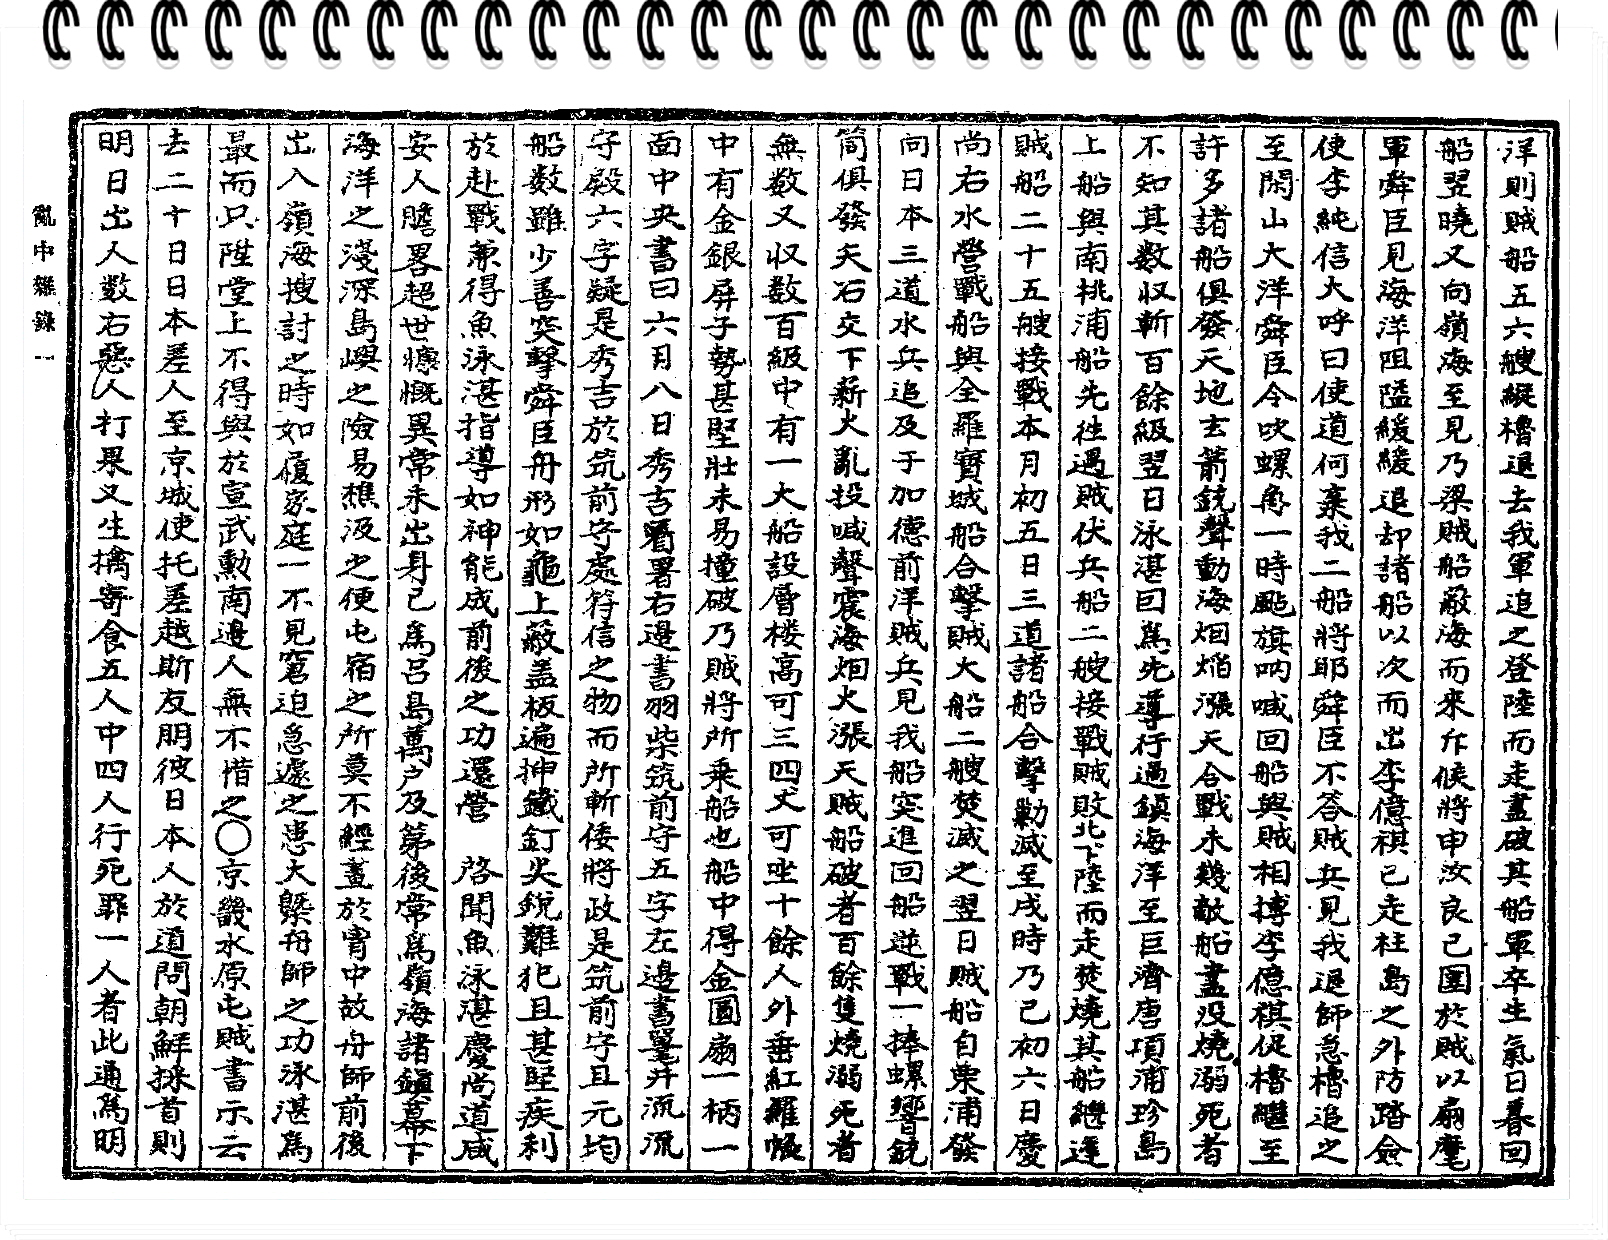 洋則賊船五六艘縱櫓退去我軍追之登陸而走盡破其船軍卒生氣日暮回
船翌曉又向嶺海至見乃梁賊船蔽海而來斥候將申汝良已圍於賊以扇麾
軍舜臣見海洋阻隘緩緩退却諸船以次而出李億祺已走柱島之外防踏僉
使李純信大呼曰使道何棄我二船將耶舜臣不答賊兵見我退師急櫓追之
至閑山大洋舜臣令吹螺角一時颭旗吶喊回船與賊相搏李億祺促櫓繼至
許多諸船俱發天地玄箭銃聲動海烟焰漲天合戰未幾敵船盡沒燒溺死者
不知其数収斬百餘級翌日泳湛回爲先導行過鎭海洋至巨濟唐項浦珍島
上船與南桃浦船先徃遇賊伏兵船二艘接戰賊敗北下陸而走焚燒其船繼逢
賊船二十五艘接戰本月初五日三道諸船合擊勦滅至戌時乃已初六日慶
尚右水營戰船與全羅寶城船合擊賊大船二艘焚滅之翌日賊船自栗浦發
向日本三道水兵追及于加德前洋賊兵見我船突進回船逆戰一捧螺響銃
筒俱發矢石交下薪火亂投喊聲震海烟火漲天賊船破者百餘隻燒溺死者
無数又収数百級中有一大船設層楼高可三四丈可坐十餘人外垂紅羅幨
中有金銀屛子勢甚堅壯未易撞破乃賊將所乗船也船中得金團扇一柄一
面中央書曰六月八日秀吉着署右邊書羽柴筑前守五字左邊書鼍井流流
守殿六字疑是秀吉於筑前守處符信之物而所斬倭將政是筑前守且元均
船数雖少善突擊舜臣舟形如龜上蔽盖板遍抻鐵釘尖銳難犯且甚堅疾利
於赴戰兼得魚泳湛指導如神能成前後之功還營　啓聞魚泳湛慶尚道咸
安人膽畧超世慷慨異常未出身已爲呂島萬户及第後常爲嶺海諸鎭幕下
海洋之淺深島嶼之險易樵汲之便屯宿之所莫不經畫於胷中故舟師前後
出入嶺海搜討之時如履家庭一不見窘迫急遽之患大槩舟師之功泳湛爲
最而只陞堂上不得與於宣武勳南邊人無不惜之〇京畿水原屯賊書示云
去二十日日本差人至京城使托差越斯友朋彼日本人於道問朝鮮採首則
明日出人数右惡人打果又生擒寄食五人中四人行死罪一人者此通爲明
亂中雜錄一